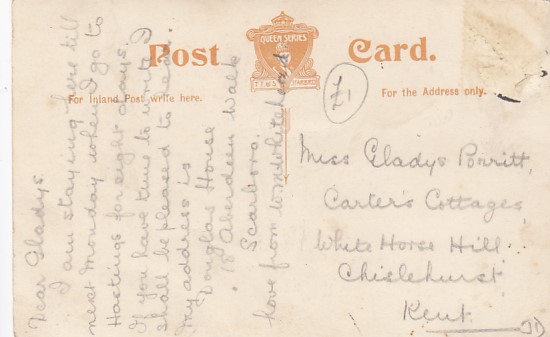 Post Card.
QUEEN SERIES
For Inland Post write here.
For the Address only.
£1
Dear Gladys.
I am staying here till
next Monday when I go to
Hastings for eight days.
If you have time to write I
shall be pleased to read.
My address is
Douglas House
18 Aberdeen Walk
Scarboro.
Love from W. M. Whitehead
Miss Gladys Porritt,
Carter's Cottages,
White Horse Hill
Chislehurst
Kent